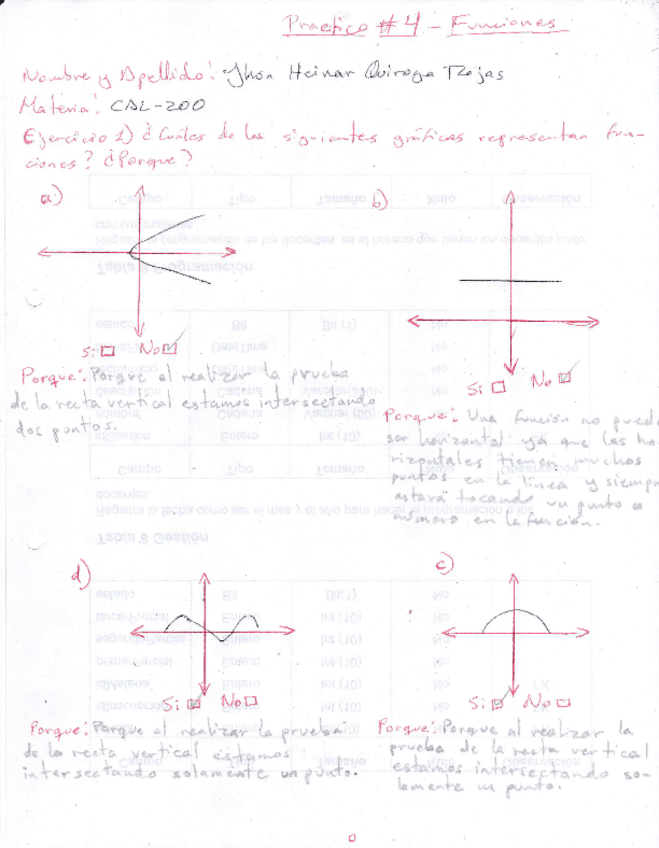 Practico #4 - Funciones
Nombre y Apellido: Jhon Heinar Quiroga Rojas
Materia: CAL-200
Ejercicio 1) ¿Cuáles de las siguientes gráficas representan fun-
ciones? ¿Porque?
a)
Si No
Porque: Porque al realizar la prueba
de la recta vertical estamos intersectando
dos puntos.
b)
Si No
Porque: Una función no puede
ser horizontal ya que las ho-
rizontales tienen muchos
puntos en la línea y siempre
estará tocando un punto o
número en la función.
d)
Si No
Porque: Porque al realizar la prueba
de la recta vertical estamos
intersectando solamente un punto.
c)
Si No
Porque: Porque al realizar la
prueba de la recta vertical
estamos intersectando so-
lamente un punto.